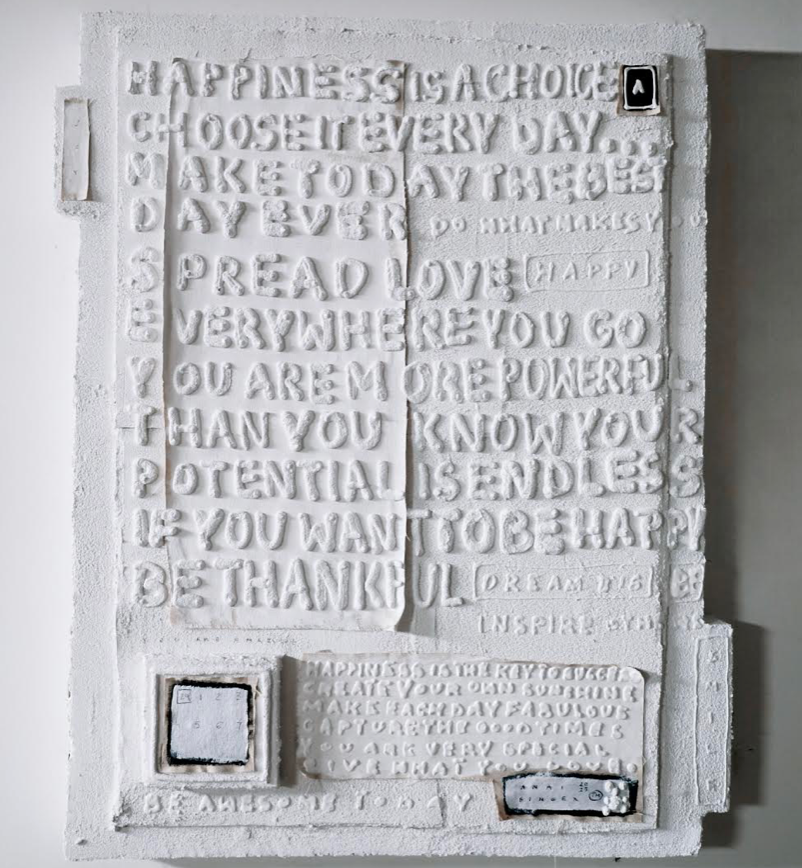 HAPPINESS IS A CHOICE A
CHOOSE IT EVERY DAY...
MAKE TODAY THE BEST
DAY EVER DO WHAT MAKES YOU
SPREAD LOVE HAPPY
EVERYWHERE YOU GO
YOU ARE MORE POWERFUL.
THAN YOU KNOW YOUR
POTENTIAL IS ENDLESS
IF YOU WANT TO BE HAPPY
BE THANKFUL DREAM BIG BE
INSPIRE OTHERS
YOU ARE
HAPPINESS IS THE KEY TO
CREATE YOUR OWN SUNSHINE
MAKE EACH DAY FABULOUS
CAPTURE THE GOOD TIMES
YOU ARE VERY SPECIAL
LIVE WHAT YOU LOVE
1 2 3
6 7
BE AWESOME TODAY